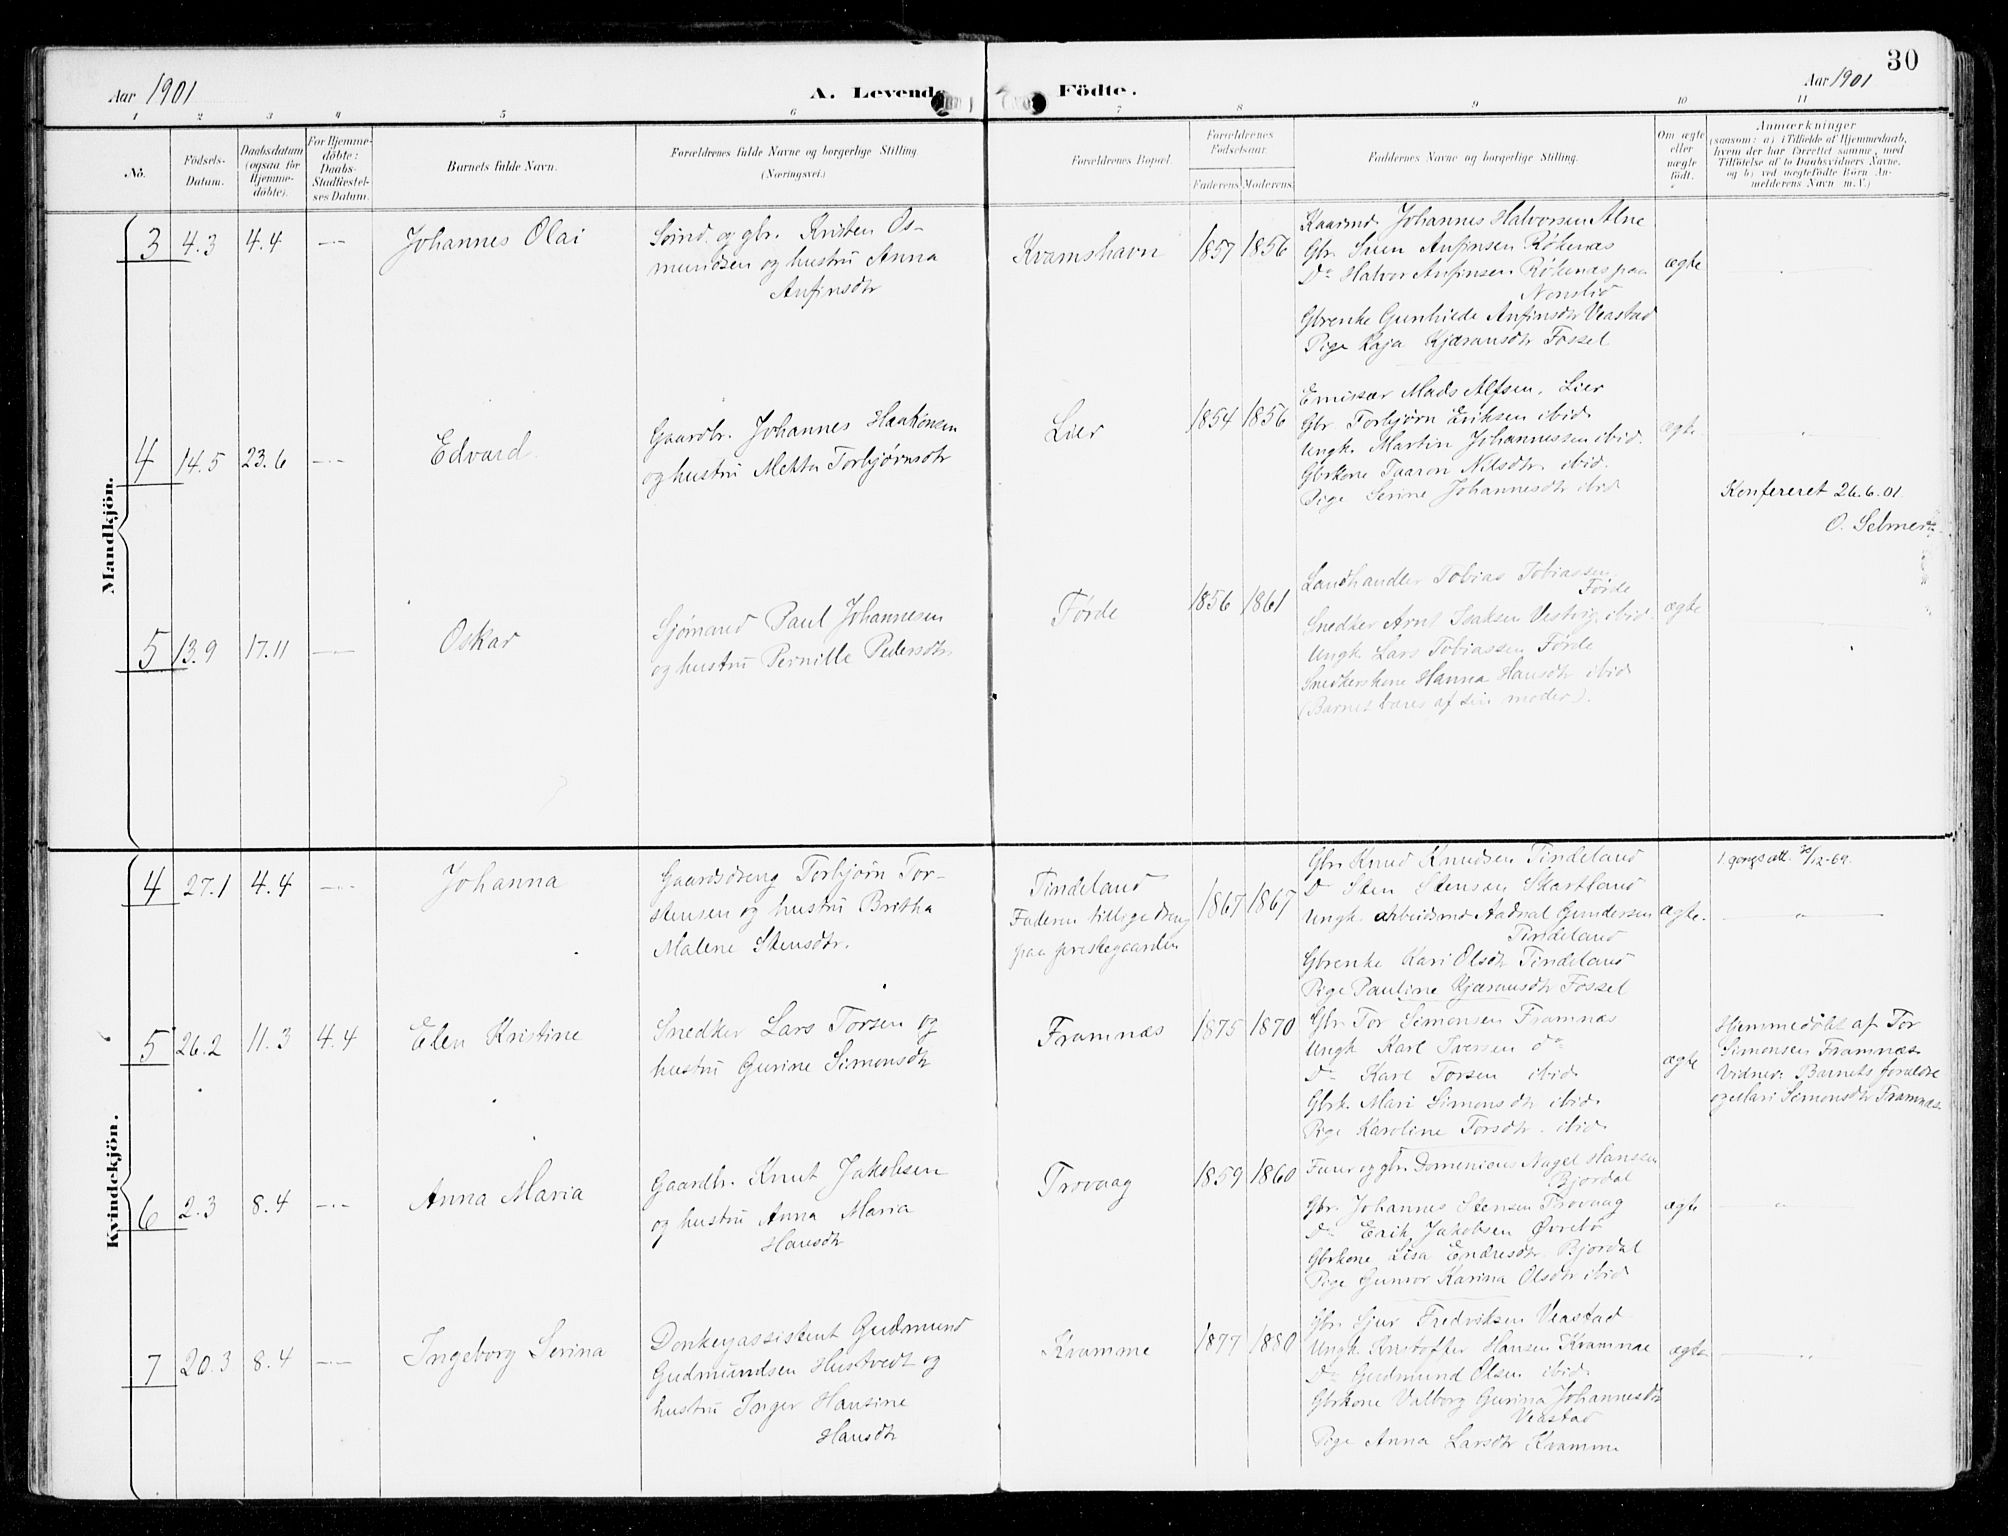 30
Aar 1901
A. Levende Födte.
Aar 1901
1 2 3 4 5 6 7 8 9 10 11
No.
Födsels-Datum.
Daabsdatum (ogsaa for Hjemmedöbte).
For Hjemmedöbte: Daabs-Stadfæstelses Datum.
Barnets fulde Navn.
Forældrenes fulde Navne og borgerlige Stilling (Næringsvei.)
Forældrenes Bopæl.
Forældrenes Födselsaar.
Faderens Moderens
Faddernes Navne og borgerlige Stilling.
Om ægte eller uægte födt.
Anmærkninger
(saasom: a) i Tilfælde af Hjemmedaab, hvem der har forrettet samme, med Tilföielse af to Daabsvidners Navne, og b) ved uægtefödte Börn Anmelderens Navn m.V.)
Mandkjön.
3 4.3 4.4 —
Johannes Olai
og gbr. Kristen Os-
mundsen og hustru Anna
Anfinsdtr
Kvamshavn
1857 1856
Kaarmd Johannes Halvorsen Alne
Gbr. Sven Anfinsen Rökenæs
Do Halvor Anfinsen Rökenæs paa
Gbrenke Gunhilde Anfinsdtr Veastad
Pige Kaja Kjæransdtr Fossel
ægte
4 14.5 23.6 —
Edvard
Gaardbr. Johannes Haakonsen
og hustru Metta Torbjørnsdtr
Lier
1854 1856
Emissær Mads Alfsen, Lier
Gbr Torbjørn Eriksen ibid.
Ungk. Martin Johannessen ibid.
Gbrkone Taaron Nilsdtr. ibid.
Pige Serine Johannesdtr ibid
ægte
"
Konfereret 26.6.01
O. Selmer
5 13.9 17.11 —
Oskar
Sjømand Paul Johannesen
og hustru Pernille Pedersdtr.
Førde
1856 1861
Landhandler Tobias Tobiassen,
Førde
Snedker Arnt Isaksen Vestvig ibid.
Ungk. Lars Tobiassen Førde
Snedkerskone Hanna Hansdtr ibid
(Barnet bares af sin moder).
ægte
Kvindekjön.
4 27.1 4.4 —
Johanna
Gaardsdreng Torbjørn Tor-
stensen og hustru Britha
Malene Stensdtr.
Tindeland
Faderen tillige dreng
paa prestegaarden
1867 1867
Gbr. Knud Knudsen Tindeland
Do Sten Stensen Skartland
Ungk. arbeidsmd Aadnal Gundersen
Tindeland
Gbrenke Kari Olsdtr Tindeland
Pige Pauline Kjæransdtr Fossel
ægte.
1 gangs att. 30/12-69.
"
5 26.2 11.3 4.4
Elen Kristine
Snedker Lars Torsen og
hustru Gurine Simonsdtr
Framnæs
1875 1870
Gbr. Tor Simonsen Framnæs
Ungk Karl Iversen do
Do Karl Torsen ibid
Gbrk. Mari Simonsdtr ibid.
Pige Karoline Torsdtr. ibid
ægte
Hjemmedøbt af Tor
Simonsen Framnæs.
Vidner: Barnets forældre
og Mari Simonsdtr Framnæs
6 2.3 8.4 —
Anna Maria
Gaardbr. Knut Jakobsen
og hustru Anna Maria
Hansdtr
Trovaag
1859 1860
og gbr. Domenicus Nagel Hansen
Bjordal
Gbr. Johannes Stensen Trovaag
Do Erik Jakobsen Øvrebø
Gbrkone Lisa Endresdtr. Bjordal
Pige Gunvor Karina Olsdtr ibid
ægte
"
7 20.3 8.4 —
Ingeborg Serina
Donkeyassistent Gudmund
Gudmundsen Hustvedt og
hustru Inger Hansine
Hansdtr
Kvamme
1877 1880
Gbr. Sjur Fredriksen Veastad
Ungk. Kristoffer Hansen Kvamme
Do Gudmund Olsen ibid.
Gbrkone Valborg Gurina Johannesdtr
Veastad
Pige Anna Larsdtr Kvamme
ægte
"